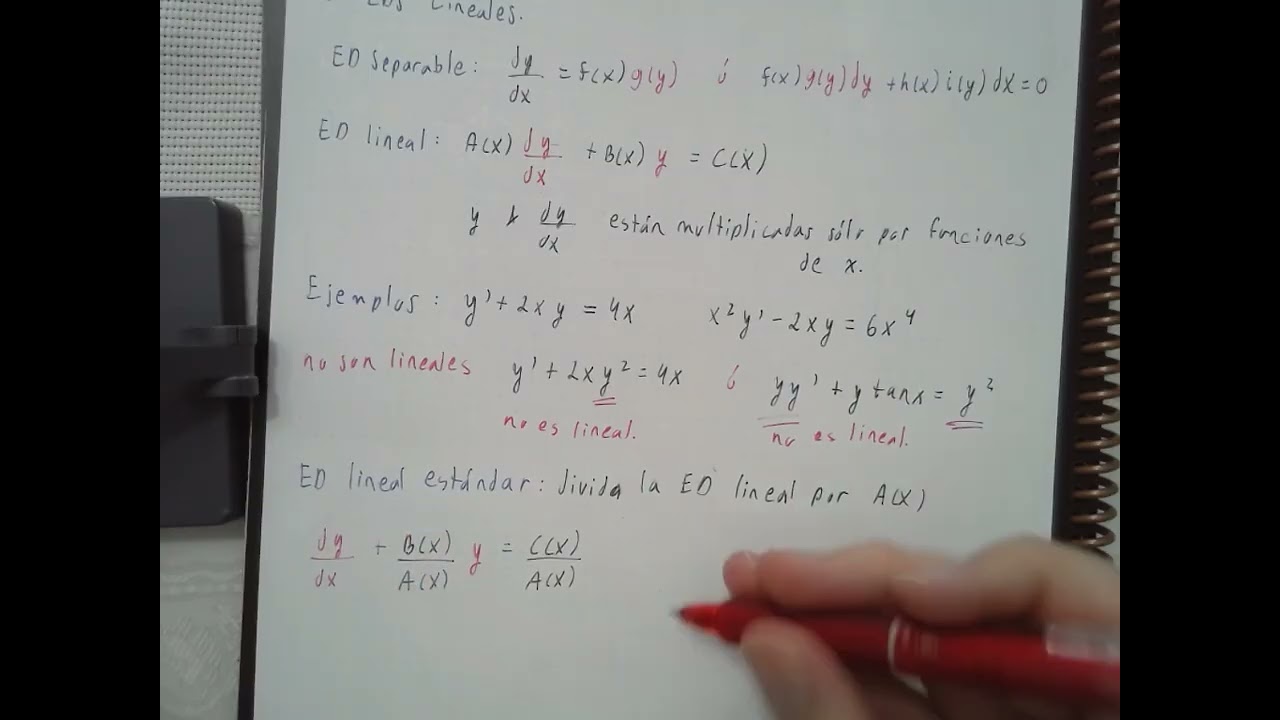 EDs Lineales.
ED Separable: dy/dx = f(x) g(y) ó f(x) g(y) dy + h(x) i(y) dx = 0
ED lineal: A(x) dy/dx + B(x) y = C(x)
y y dy/dx están multiplicadas sólo por funciones
de x.
Ejemplos: y' + 2xy = 4x x²y' - 2xy = 6x⁴
no son lineales y' + 2xy² = 4x ó yy' + y tanx = y²
no es lineal. no es lineal.
ED lineal estándar: divida la ED lineal por A(x)
dy/dx + B(x)/A(x) y = C(x)/A(x)